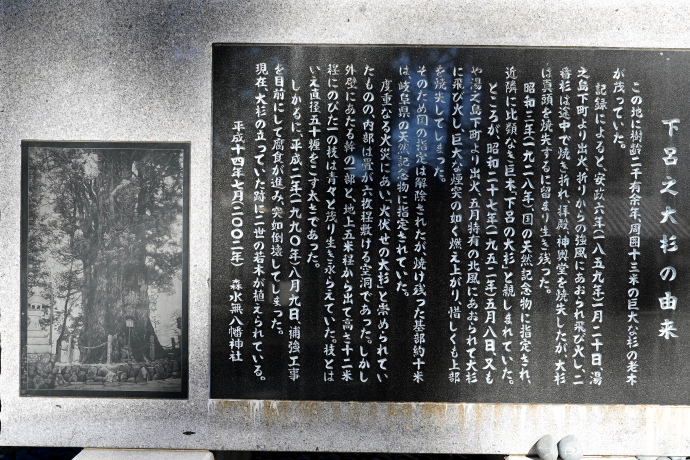 下呂之大杉の由来
この地に樹齢二千有余年、周囲十三米の巨大な杉の老木
が茂っていた。
記録によると、安政六年(一八五九年)一月二十日、湯
之島下町より出火、折りからの強風にあおられ飛び火し、二
番杉は途中で焼き折れ、拝殿、神輿堂を焼失したが、大杉
は真頭を焼失するに留まり生き残った。
昭和三年(一九二八年)国の天然記念物に指定され、
近隣に比類なき巨木、下呂の大杉と親しまれていた。
ところが、昭和二十七年(一九五二年)五月八日、又も
や湯之島下町より出火、五月特有の北風にあおられて大杉
に飛び火し、巨大な煙突の如く燃え上がり、惜しくも上部
を焼失してしまった。
そのため国の指定は解除されたが、焼け残った基部約十米
は、岐阜県の天然記念物に指定されていた。
度重なる火災にあい、火伏せの大杉と崇められてい
たものの、内部は畳が六枚程敷ける空洞であった。しかし
外壁にあたる幹の一部と、地上五米程から出て高さ十二米
程にのびた一の枝は青々と茂り生き永らえていた。枝とは
いえ直径五十糎をこす太さであった。
しかるに、平成二年(一九九〇年)八月九日、補強工事
を目前にして腐食が進み、突如倒壊してしまった。
現在、大杉の立っていた跡に二世の若木が植えられている。
平成十四年七月(二〇〇二年) 森水無八幡神社